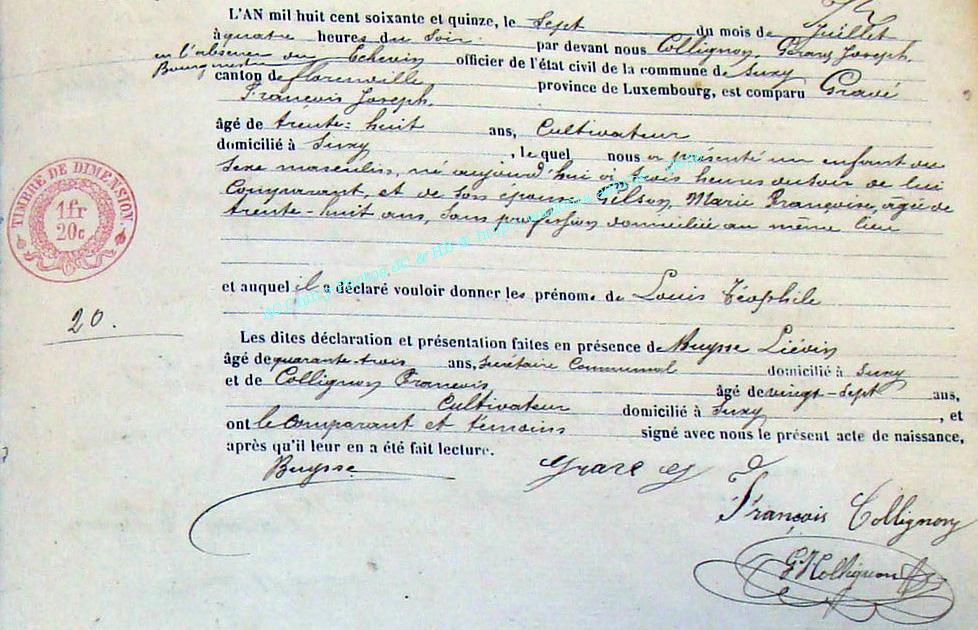 L'AN mil huit cent soixante et quinze, le Sept du mois de Juillet
à quatre heures du Soir par devant nous Collignon Gérard Joseph,
en l'absence du Bourgmestre Echevin officier de l'état civil de la commune de Suxy
canton de florenville province de Luxembourg, est comparu Gravé
François Joseph.
âgé de trente-huit ans, Cultivateur
domicilié à Suxy, le quel nous a présenté un enfant du
Sexe masculin, né aujourd'hui à trois heures du soir de lui
Comparant, et de son épouse Gilson, Marie Françoise, agée de
trente-huit ans, sans profession domiciliée au même lieu
et auquel il a déclaré vouloir donner les prénoms de Louis Téophile
TIMBRE DE DIMENSION
1 fr
20 c
20.
Les dites déclaration et présentation faites en présence de Buysse Liévin
âgé de quarante-trois ans, Secrétaire Communal domicilié à Suxy
et de Collignon François âgé de vingt-Sept ans,
Cultivateur domicilié à Suxy, et
ont le Comparant et témoins signé avec nous le présent acte de naissance,
après qu'il leur en a été fait lecture.
Buysse
François Collignon